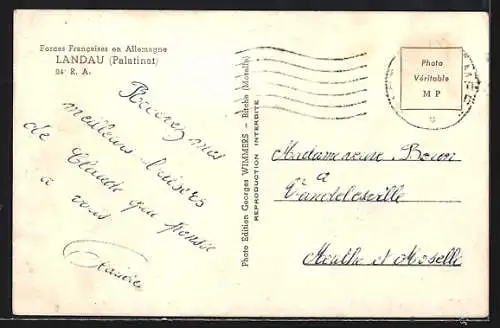 Forces Françaises en Allemagne
LANDAU (Palatinat)
24e R. A.
Recevez mes
meilleurs baisers
de Claude qui pense
à vous
Photo Edition Georges WIMMERS - Bitche (Moselle)
REPRODUCTION INTERDITE
Photo
Véritable
M P
Madame veuve
à
Vandeleville
Meurthe et Moselle